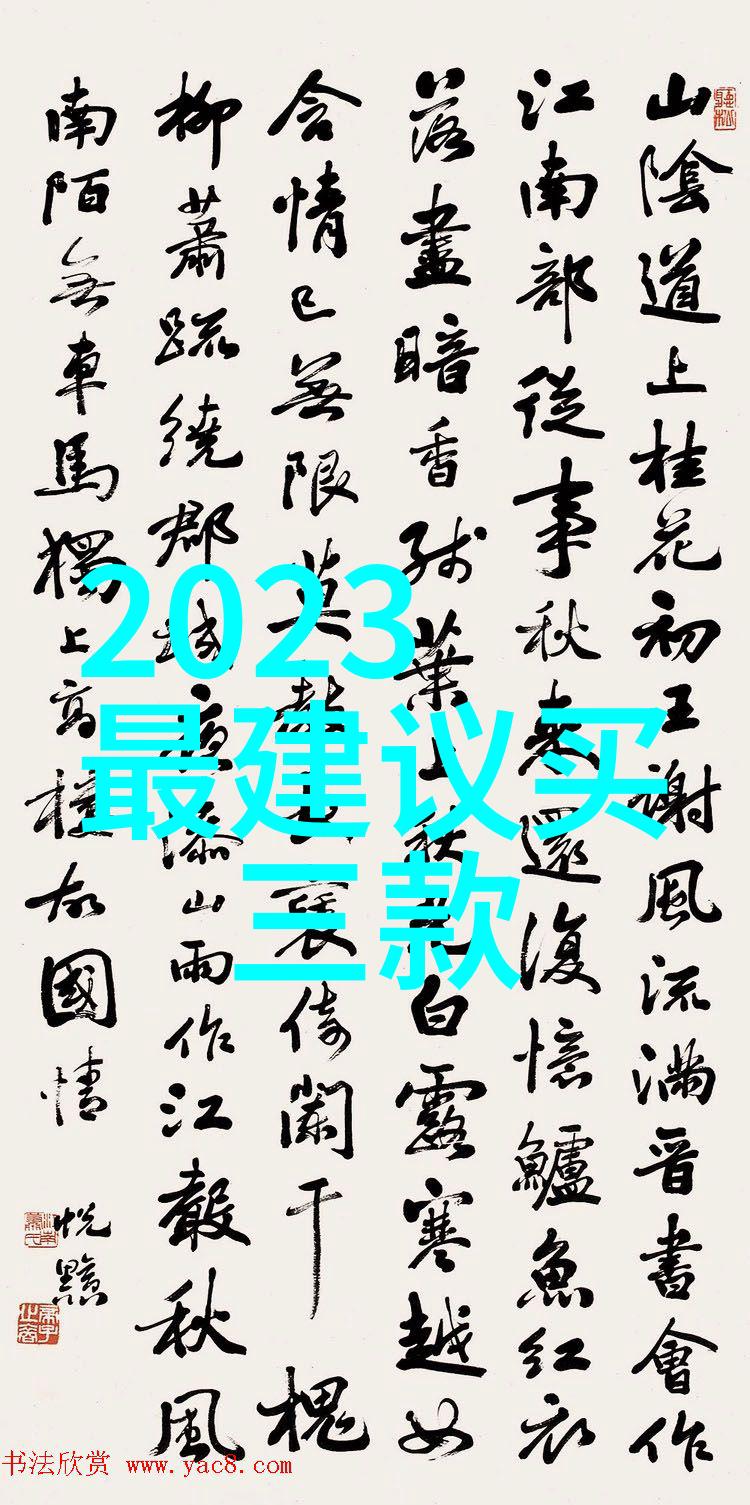 山陰道上桂花初王謝風流滿晉書會作
江南部從事秋來還復憶鱸魚紅衣
落盡暗香殘葉上秋光白露寒越女
含情已無限莫教長褎倚闌干 槐
柳蕭疏繞郡城夜添山雨作江聲秋風
南陌無車馬獨上高樓故國情
2023
最建议买
三款
书法欣赏 www.yac8.com